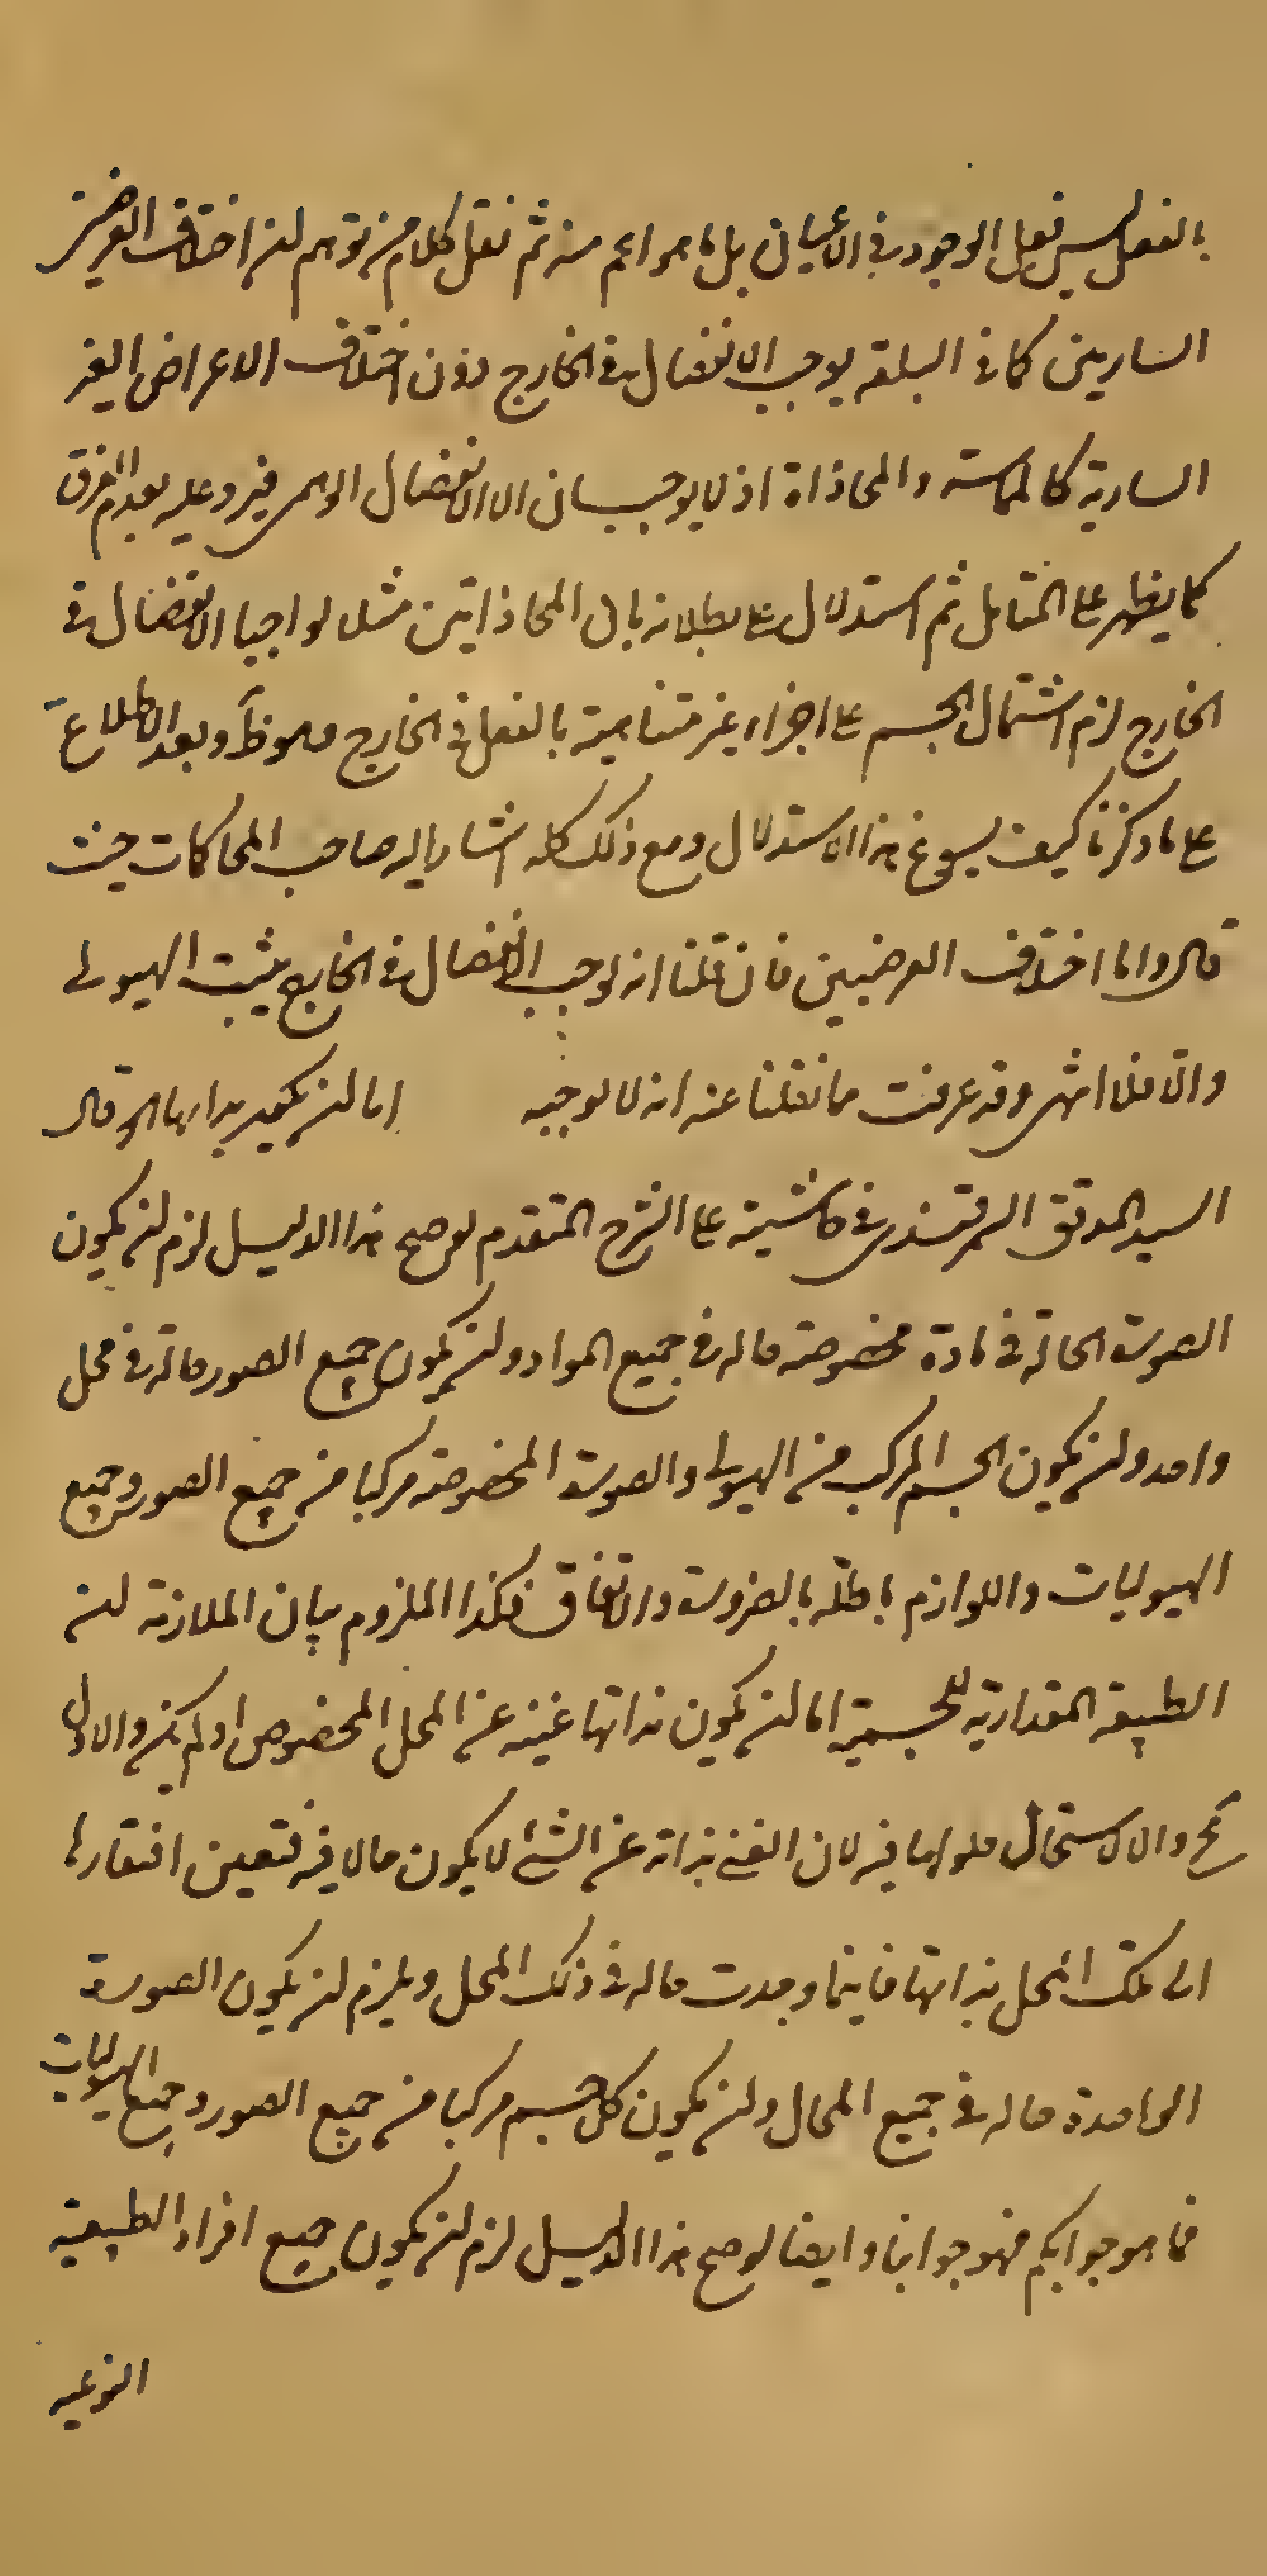 بالفعل ليس فعل الوجود في الأعيان بل ما هو اعم منه ثم نقل كلام من توهم ان اختلاف العرضين
الساريين كما في البلقة يوجب الانفصال في الخارج دون اختلاف الاعراض الغير
السارية كالمماسة والمحاذاة اذ لا يوجبان الا الانفصال الوهمي فيرد عليه بعدم الفرق
كما يظهر على المتامل ثم استدلال على بطلانه بان المحاذاتين مثلا لو اجبا الانفصال في
الخارج لزم اشتمال الجسم على اجزاء غير متناهية بالفعل في الخارج ملحوظاً وبعد الاطلاع
على ما ذكرنا كيف يسوغ هذا الاستدلال ومع ذلك كله اشار اليه صاحب المحاكمات حيث
قال واما اختلاف العرضيين فان قلنا انه يوجب الانفصال في الخارج يثبت الهيولى
والا فلا انتهى وقد عرفت ما نقلنا عنه انه لا يوجبه اما ان يكون بذاتها الخ قال
السيد المدقق السمرقندي في حاشيته على الشرح المتقدم لو صح هذا الدليل لزم ان يكون
الصورة الحالة في مادة مخصوصة حالة في جميع المواد وان يكون جميع الصور حالة في محل
واحد وان يكون الجسم المركب من الهيولى والصورة المخصوصة مركبا من جميع الصور وجميع
الهيوليات واللوازم باطلة بالضرورة والاتفاق فكذا الملزوم بيان الملازمة ان
الطبيعة المقدارية للجسمية اما ان يكون بذاتها غنية عن المحل المخصوص او لم يكن والاول
مح والا لاستحال حلولها فيه لان الغني بذاته عن الشئ لا يكون حالا فيه فتعين افتقارها
الى تلك المحل بذاتها فاينما وجدت حالة في ذلك المحل ويلزم ان يكون الصورة
الواحدة حالة في جميع المحال وان يكون كل جسم مركبا من جميع الصور وجميع الهيوليات
فما هو جوابكم فهو جوابنا وايضا لو صح هذا الدليل لزم ان يكون جميع افراد الطبيعة
النوعية